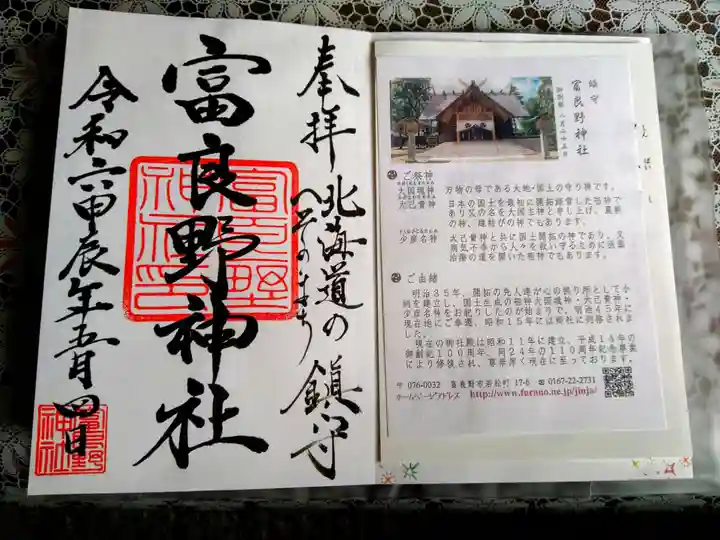 奉拝
北海道の鎮守
へそのまち
富良野神社
富良野神社印
令和六甲辰年五月四日
富良野神社
鎮守
富良野神社
御例祭 八月二十五日
ご祭神
大国魂神 万物の母である大地・国土の守り神です。
大己貴神 日本の国土を最初に開拓経営した祖神で
あり又の名を大国主神と申し上げ、農耕
の神、縁結びの神でもあります。
少彦名神 大己貴神と共に国土開拓の神であり、又
病気不幸から人々を救いするために医薬
治療の道を開いた祖神でもあります。
ご由緒
明治35年、開拓の先人達が心の拠り所として小
祠を建立し、国土生成の祖神大国魂神・大己貴神・
少彦名神をお祀りしたのが始まりで、明治45年に
現在地にご奉遷、昭和15年には郷社に列格されまし
た。
現在の御社殿は昭和11年に建立、平成14年の
御創祀100周年、同24年の110周年記念事業
により修復され、尊厳厚く現在に至っております。
〒 076-0032 富良野市若松町 17-6 ☎ 0167-22-2731
ホームページアドレス http://www.furano.ne.jp/jinja/